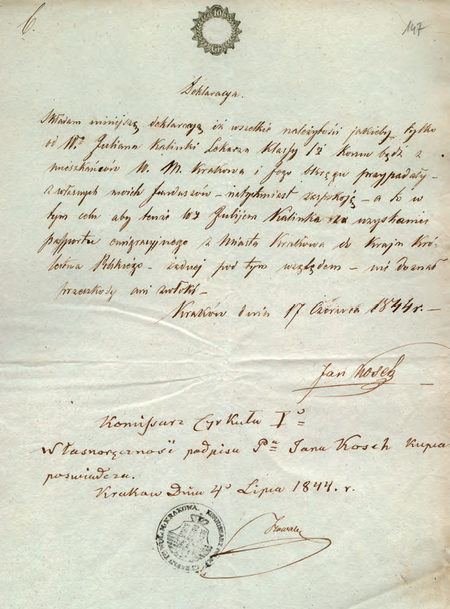 6.
147
10
Deklaracya.
Składam niniejszą deklaracyą iż wszelkie należytości jakieby tylko
od Wo Juliana Kalinki Lekarza Klassy 1j komu bądź z
mieszkańców W. M. Krakowa i Jego Okręgu przypadały
z własnych moich funduszów – natychmiast zaspokoję – a to w
tym celu aby tenże Kalinka uzyskanie
passportu emigracyjnego z Miasta Krakowa do Kraju Kró-
lestwa Polskiego – żadnej pod tym względem – nie doznał
przeszkody ani zwłoki –
Kraków dnia 17 Czerwca 1844 r. –
Jan Kosch
Komissarz Cyrkułu I
Własnoręczność podpisu Pna Jana Kosch Kupca
poświadcza.
Krakow Dnia 4o Lipca 1844. r.
KRAKOWA